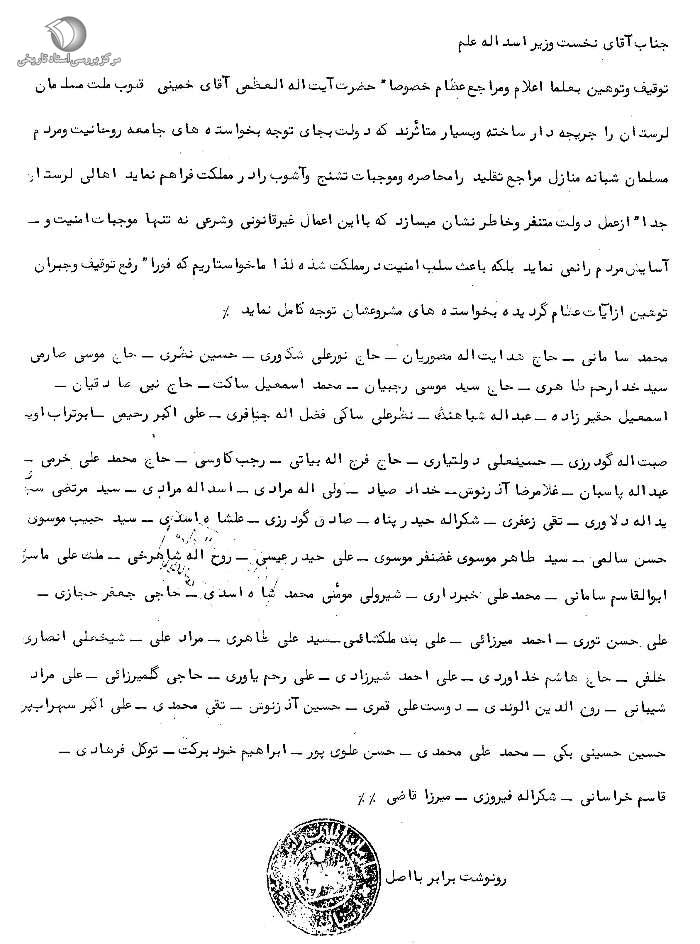 مرکز بررسی اسناد تاریخی
جناب آقای نخست وزیر اسداله علم
توقیف وتوهین بعلما اعلام ومراجع عظام خصوصا" حضرت آیت اله العظمی آقای خمینی قلوب ملت مسلمان
لرستان را جریحه دار ساخته وبسیار متأثرند که دولت بجای توجه بخواسته های جامعه روحانیت ومردم
مسلمان شبانه منازل مراجع تقلید رامحاصره وموجبات تشنج وآشوب رادر مملکت فراهم نماید اهالی لرستان
جدا" ازعمل دولت متنفر وخاطر نشان میسازد که بااین اعمال غیرقانونی وشرعی نه تنها موجبات امنیت و ــ
آسایش مردم رانمی نماید بلکه باعث سلب امنیت درمملکت شده لذا ماخواستاریم که فورا" رفع توقیف وجبران
توهین ازآیات عظام گردیده بخواسته های مشروعشان توجه کامل نماید ٪
محمد سامانی ــ حاج هدایت اله منصوریان ــ حاج نورعلی شکوری ــ حسین نظری ــ حاج موسی صارمی
سید خدارحم طاهری ــ حاج سید موسی رجبیان ــ محمد اسمعیل ساکت ــ حاج نبی صادقیان ــ
اسمعیل حقیر زاده ــ عبداله شباهنگ ــ نظرعلی ساکی فضل اله جنافری ــ علی اکبر رحیمی ــ ابوتراب
صبت اله گودرزی ــ حسینعلی دولتیاری ــ حاج فرج اله بیاتی ــ رجب کاوسی ــ حاج محمد علی خرمی ــ
عبداله پاسبان ــ غلامرضا آذرنوش ــ خداد صیاد ــ ولی اله مرادی ــ اسداله مرادی ــ سید مرتضی
یداله دلاوری ــ تقی زعفری ــ شکراله حیدرپناه ــ صادق گودرزی ــ علیشاه اسدی ــ سید حبیب موسوی
حسن سالمی ــ سید طاهر موسوی غضنفر موسوی ــ علی حیدر عیسی ــ روح اله شاهرخی ــ ملک علی
ابوالقاسم سامانی ــ محمدعلی خبرداری ــ شیرولی مومنی محمد شاه اسدی ــ حاجی جعفر حجازی ــ
علی حسن توری ــ احمد میرزائی ــ علی بک ملکشاهی ــ سید علی طاهری ــ مراد علی ــ شیخعلی انصاری
خلفی ــ حاج هاشم خداوردی ــ علی احمد شیرزادی ــ علی رحم یاوری ــ حاجی گلمیرزائی ــ علی مراد
شیبانی ــ رون الدین الوندی ــ دوست علی قمری ــ حسین آذرنوش ــ تقی محمدی ــ علی اکبر سهراب پر
حسین حسینی بکی ــ محمد علی محمدی ــ حسن علوی پور ــ ابراهیم خود برکت ــ توکل فرهادی ــ
قاسم خراسانی ــ شکراله فیروزی ــ میرزا قاضی ٪٪
رونوشت برابر بااصل